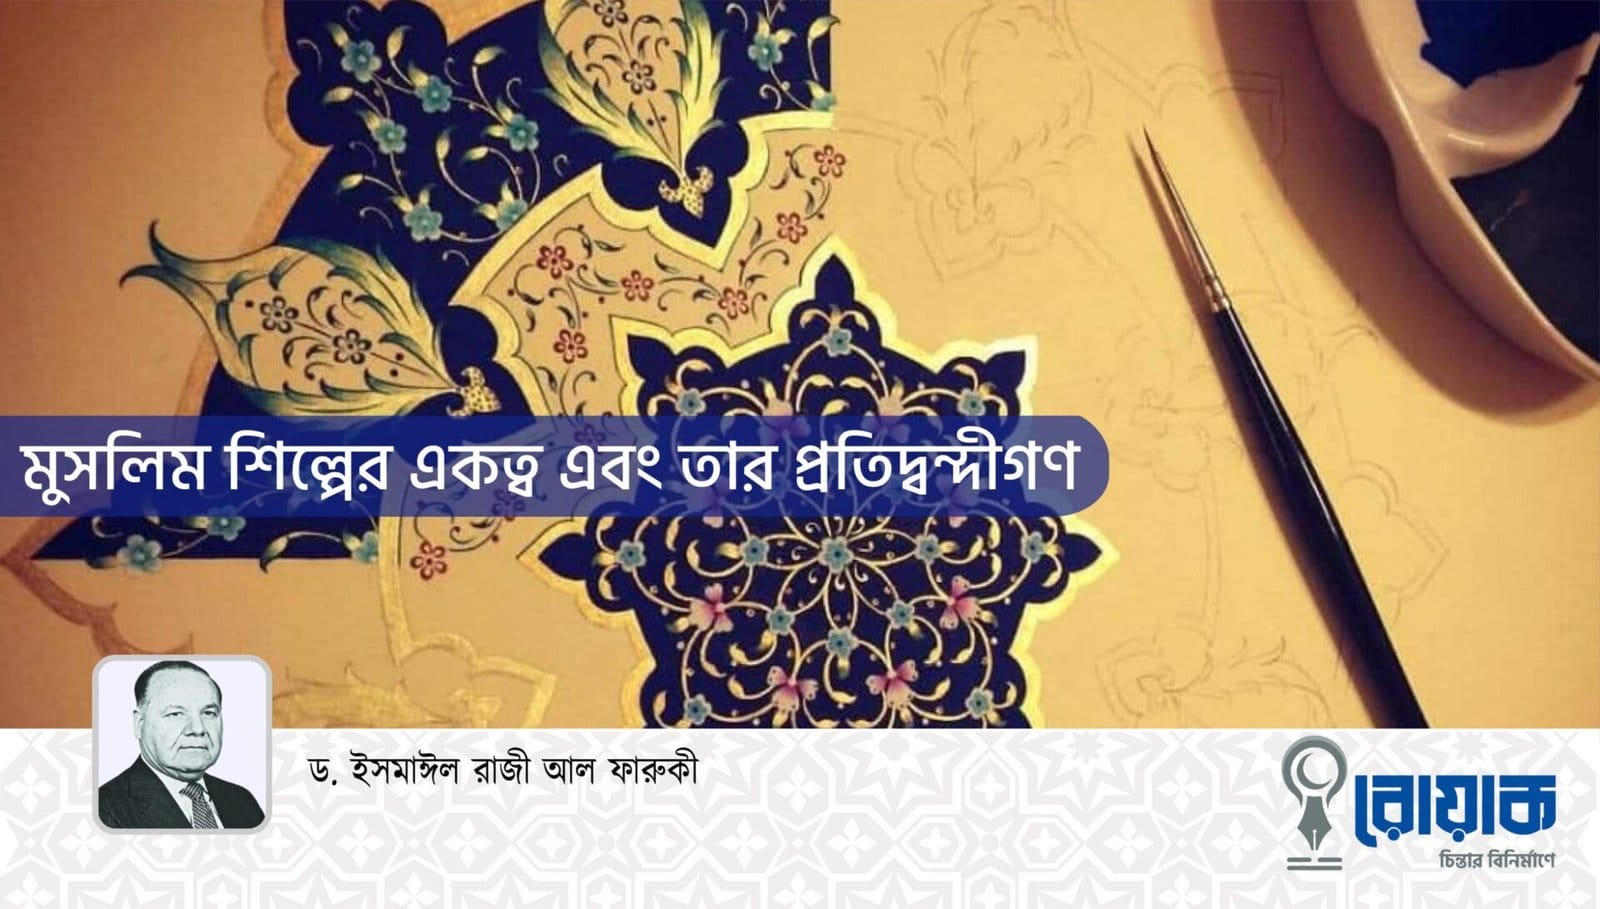 মুসলিম শিল্পের একত্ব এবং তার প্রতিদ্বন্দীগণ
ড. ইসমাঈল রাজী আল ফারুকী
রোয়াক
চিন্তার বিনির্মাণে